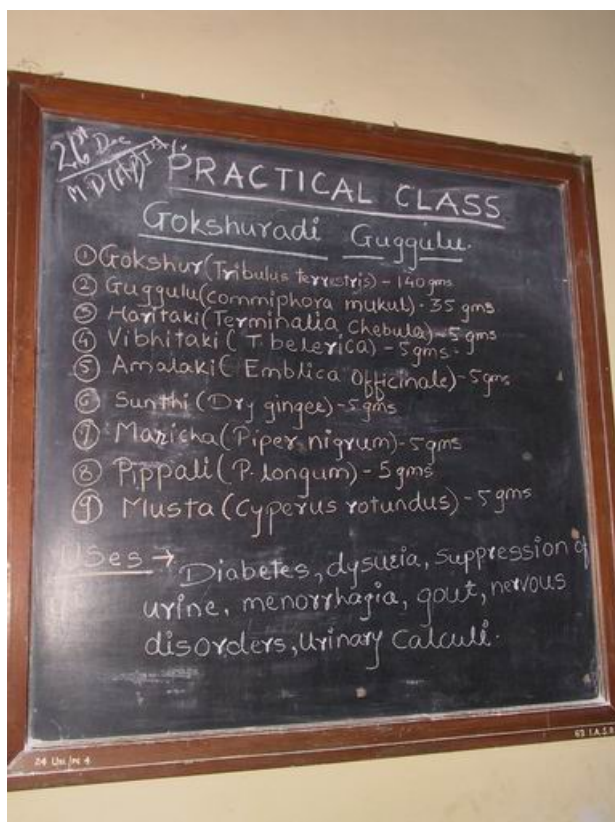 26th Dec
PRACTICAL CLASS
Gokshuradi Guggulu.
① Gokshur (Tribulus terrestris) - 140 gms
② Guggulu (commiphora mukul) - 35 gms
③ Haritaki (Terminalia chebula) - 5 gms
④ Vibhitaki (T. belerica) - 5 gms.
⑤ Amalaki (Emblica Officinale) - 5 gms
⑥ Sunthi (Dry ginger) - 5 gms
⑦ Maricha (Piper nigrum) - 5 gms
⑧ Pippali (P. longum) - 5 gms
⑨ Musta (Cyperus rotundus) - 5 gms
Uses → Diabetes, dysuria, suppression of
urine, menorrhagia, gout, nervous
disorders, Urinary Calculi.